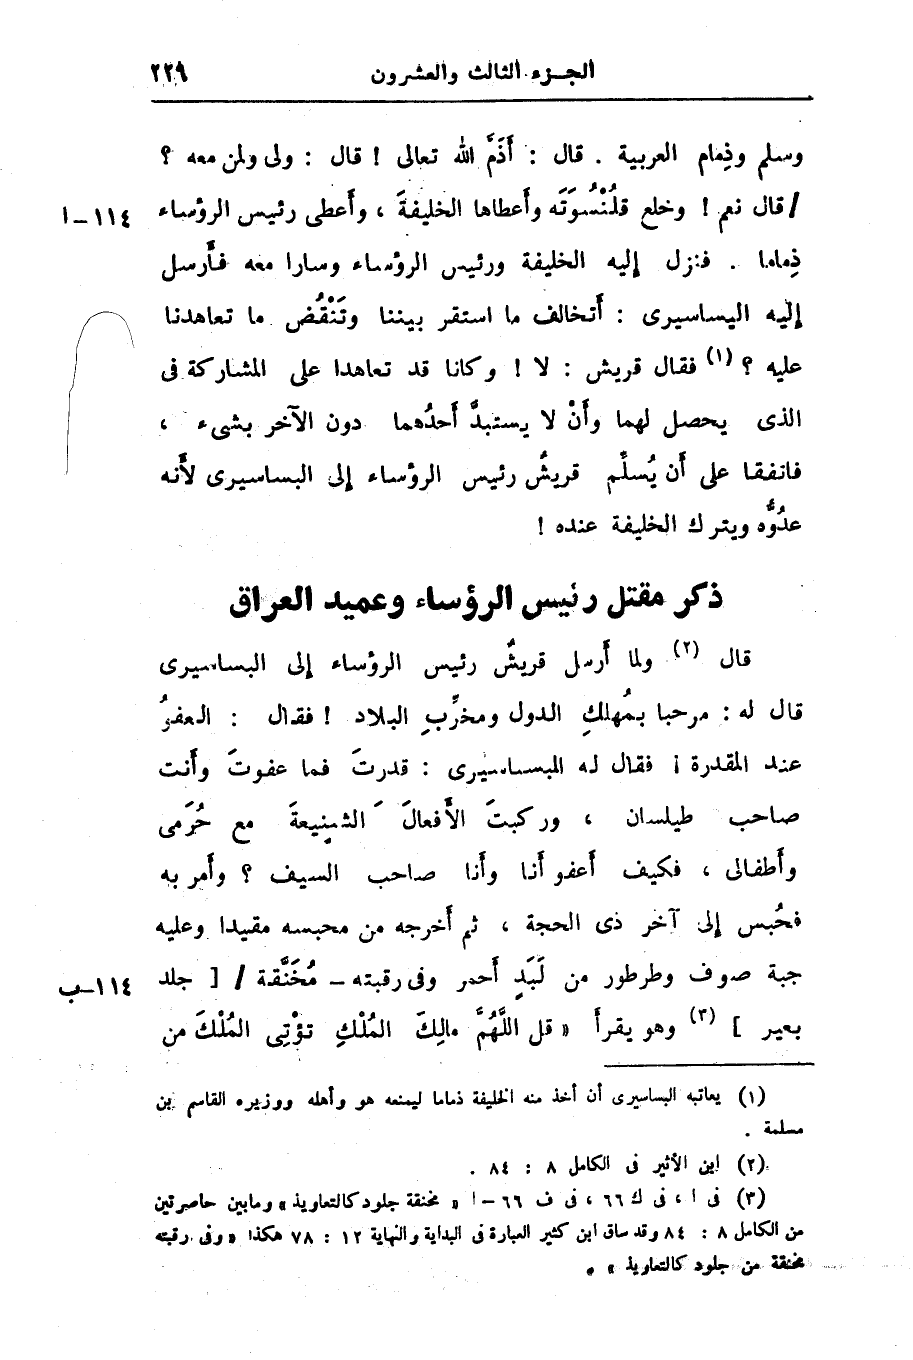 الجزء الثالث والعشرون ٢٢٩
وسلم وذِمام العربية . قال : أَذَمَّ الله تعالى ! قال : ولى ولمن معه ؟
/ قال نعم ! وخلع قلُنْسُوَتَه وأعطاها الخليفةَ ، وأعطى رئيس الرؤساء ١١٤–ا
ذِماما . فنزل إليه الخليفة ورئيس الرؤساء وسارا معه فأرسل
إليه البساسيرى : أتخالف ما استقر بيننا وتَنْقُض ما تعاهدنا
عليه ؟ (١) فقال قريش : لا ! وكانا قد تعاهدا على المشاركة فى
الذى يحصل لهما وأَنْ لا يستبدَّ أحدُهما دون الآخر بشىء ،
فاتفقا على أن يُسلِّم قريشُ رئيس الرؤساء إلى البساسيرى لأنه
عدُوُّه ويترك الخليفة عنده !
ذكر مقتل رئيس الرؤساء وعميد العراق
قال (٢) ولما أرسل قريشُ رئيس الرؤساء إلى البساسيرى
قال له : مرحبا بمُهلِكِ الدول ومخرِّبِ البلاد ! فقال : العفوُ
عند المقدرة ! فقال له البساسيرى : قدرتَ فما عفوتَ وأنت
صاحب طيلسان ، وركبتَ الأفعالَ الشنِيعةَ مع حُرَمى
وأطفالى ، فكيف أعفو أنا وأنا صاحب السيف ؟ وأمر به
فحُبس إلى آخر ذى الحجة ، ثم أخرجه من محبسه مقيدا وعليه
جبة صوف وطرطور من لَبَدٍ أحمر وفى رقبته – مُخَنَّقة / [ جلد ١١٤–ب
بعير ] (٣) وهو يقرأ « قل اللَّهُمَّ مالِكَ المُلْكِ تؤْتِى المُلْكَ من
(١) يعاتبه البساسيرى أن أخذ منه الخليفة ذماما ليمنعه هو وأهله ووزيره القاسم بن
مسلمة .
(٢) ابن الأثير فى الكامل ٨ : ٨٤ .
(٣) فى ا ، فى ك ٦٦ ، فى ف ٦٦–ا « مخنقة جلود كالتعاويذ » وما بين حاصرتين
من الكامل ٨ : ٨٤ وقد ساق ابن كثير العبارة فى البداية والنهاية ١٢ : ٧٨ هكذا « وفى رقبته
مخنقة من جلود كالتعاويذ » .